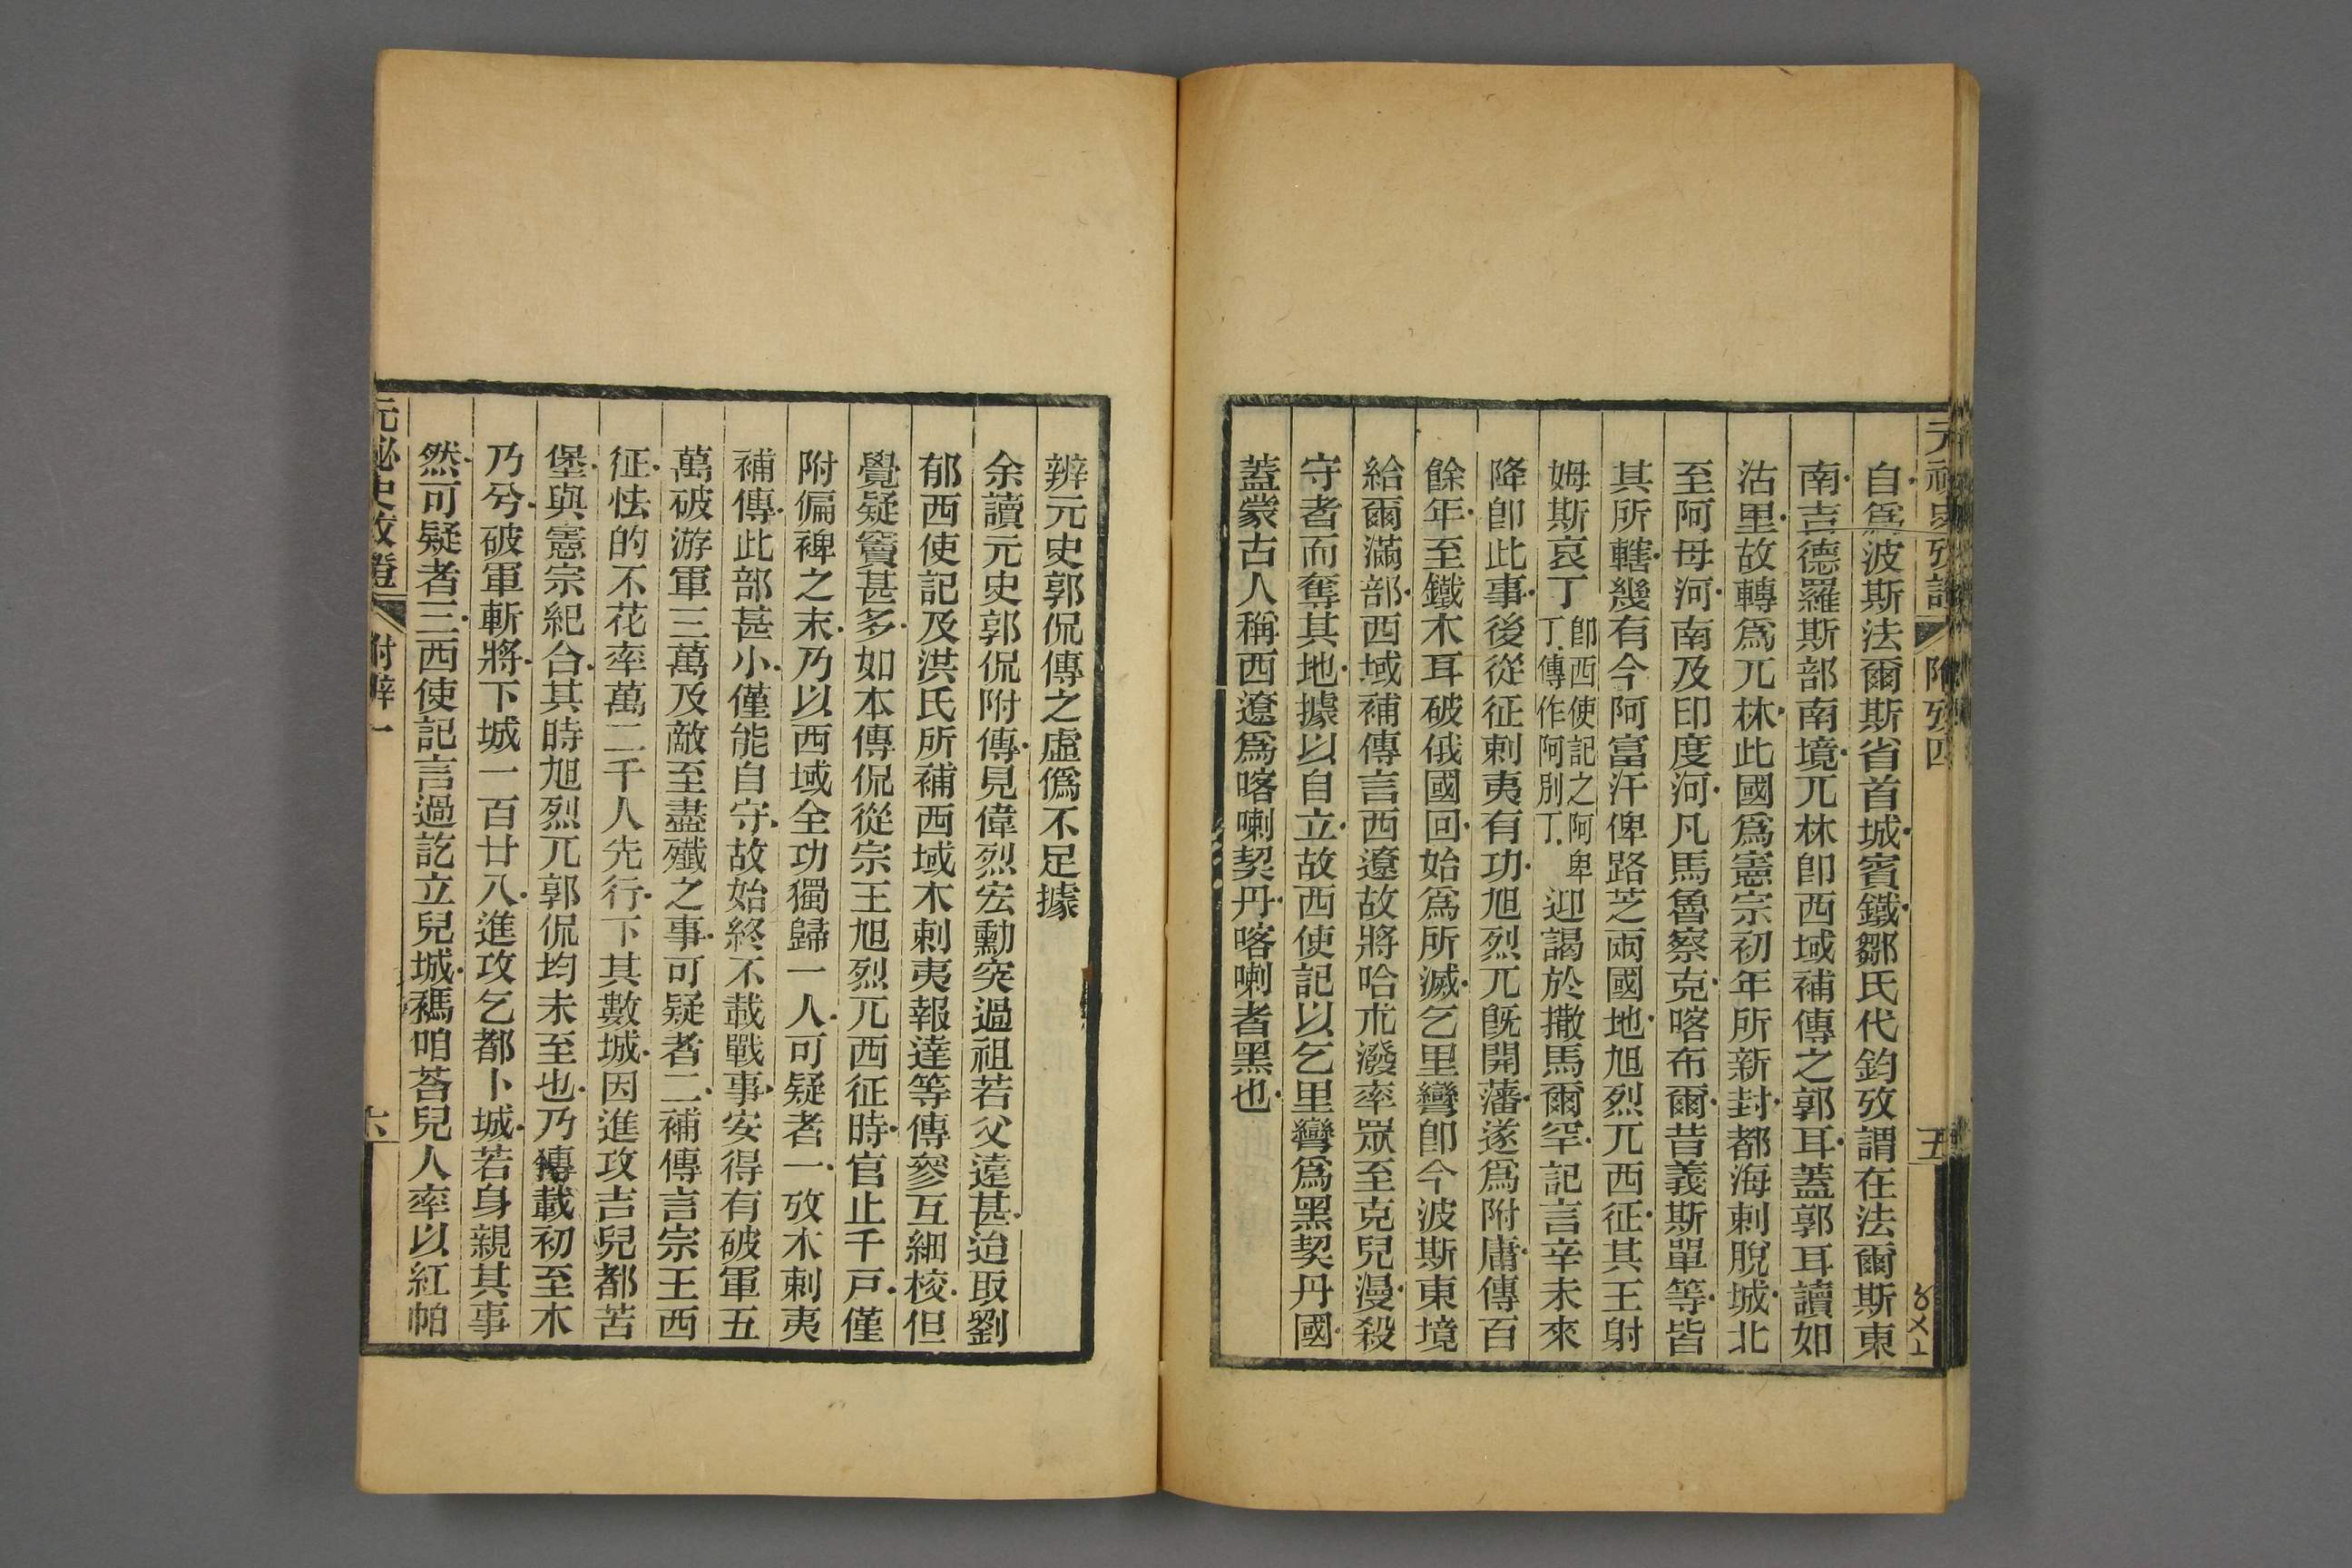 元祕史攷證 附攷四 五
自爲波斯法爾斯省首城賓鐵鄒氏代鈞攷謂在法爾斯東
南吉德羅斯部南境兀林卽西域補傳之郭耳蓋郭耳讀如
沽里故轉爲兀林此國爲憲宗初年所新封都海剌脫城北
至阿母河南及印度河凡馬魯察克喀布爾昔義斯單等皆
其所轄幾有今阿富汗俾路芝兩國地旭烈兀西征其王射
姆斯哀丁卽西使記之阿卑丁傳作阿別丁迎謁於撒馬爾罕記言辛未來
降卽此事後從征剌夷有功旭烈兀旣開藩遂爲附庸傳百
餘年至鐵木耳破俄國回始爲所滅乞里彎卽今波斯東境
給爾滿部西域補傳言西遼故將哈朮潑率眾至克兒漫殺
守者而奪其地據以自立故西使記以乞里彎爲黑契丹國
蓋蒙古人稱西遼爲喀喇契丹喀喇者黑也
辨元史郭侃傳之虛僞不足據
余讀元史郭侃附傳見偉烈宏勳突過祖若父遠甚迨取劉
郁西使記及洪氏所補西域木剌夷報達等傳參互細校但
覺疑竇甚多如本傳侃從宗王旭烈兀西征時官止千戸僅
附偏裨之末乃以西域全功獨歸一人可疑者一攷木剌夷
補傳此部甚小僅能自守故始終不載戰事安得有破軍五
萬破游軍三萬及敵至盡殲之事可疑者二補傳言宗王西
征怯的不花率萬二千人先行下其數城因進攻吉兒都苦
堡與憲宗紀合其時旭烈兀郭侃均未至也乃傳載初至木
乃兮破軍斬將下城一百廿八進攻乞都卜城若身親其事
然可疑者三西使記言過訖立兒城禡咱荅兒人率以紅帕
元祕史攷證 附辨一 六